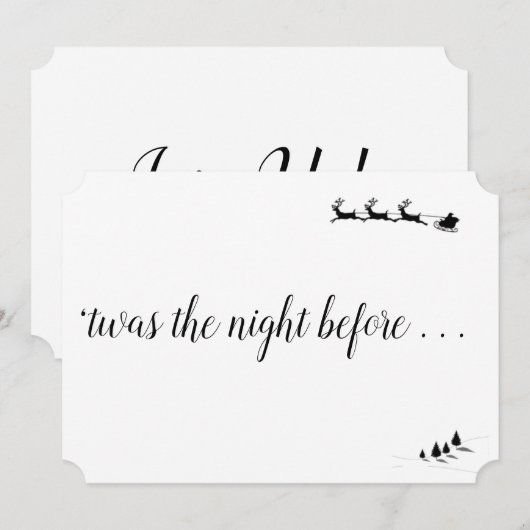 ‘twas the night before . . .